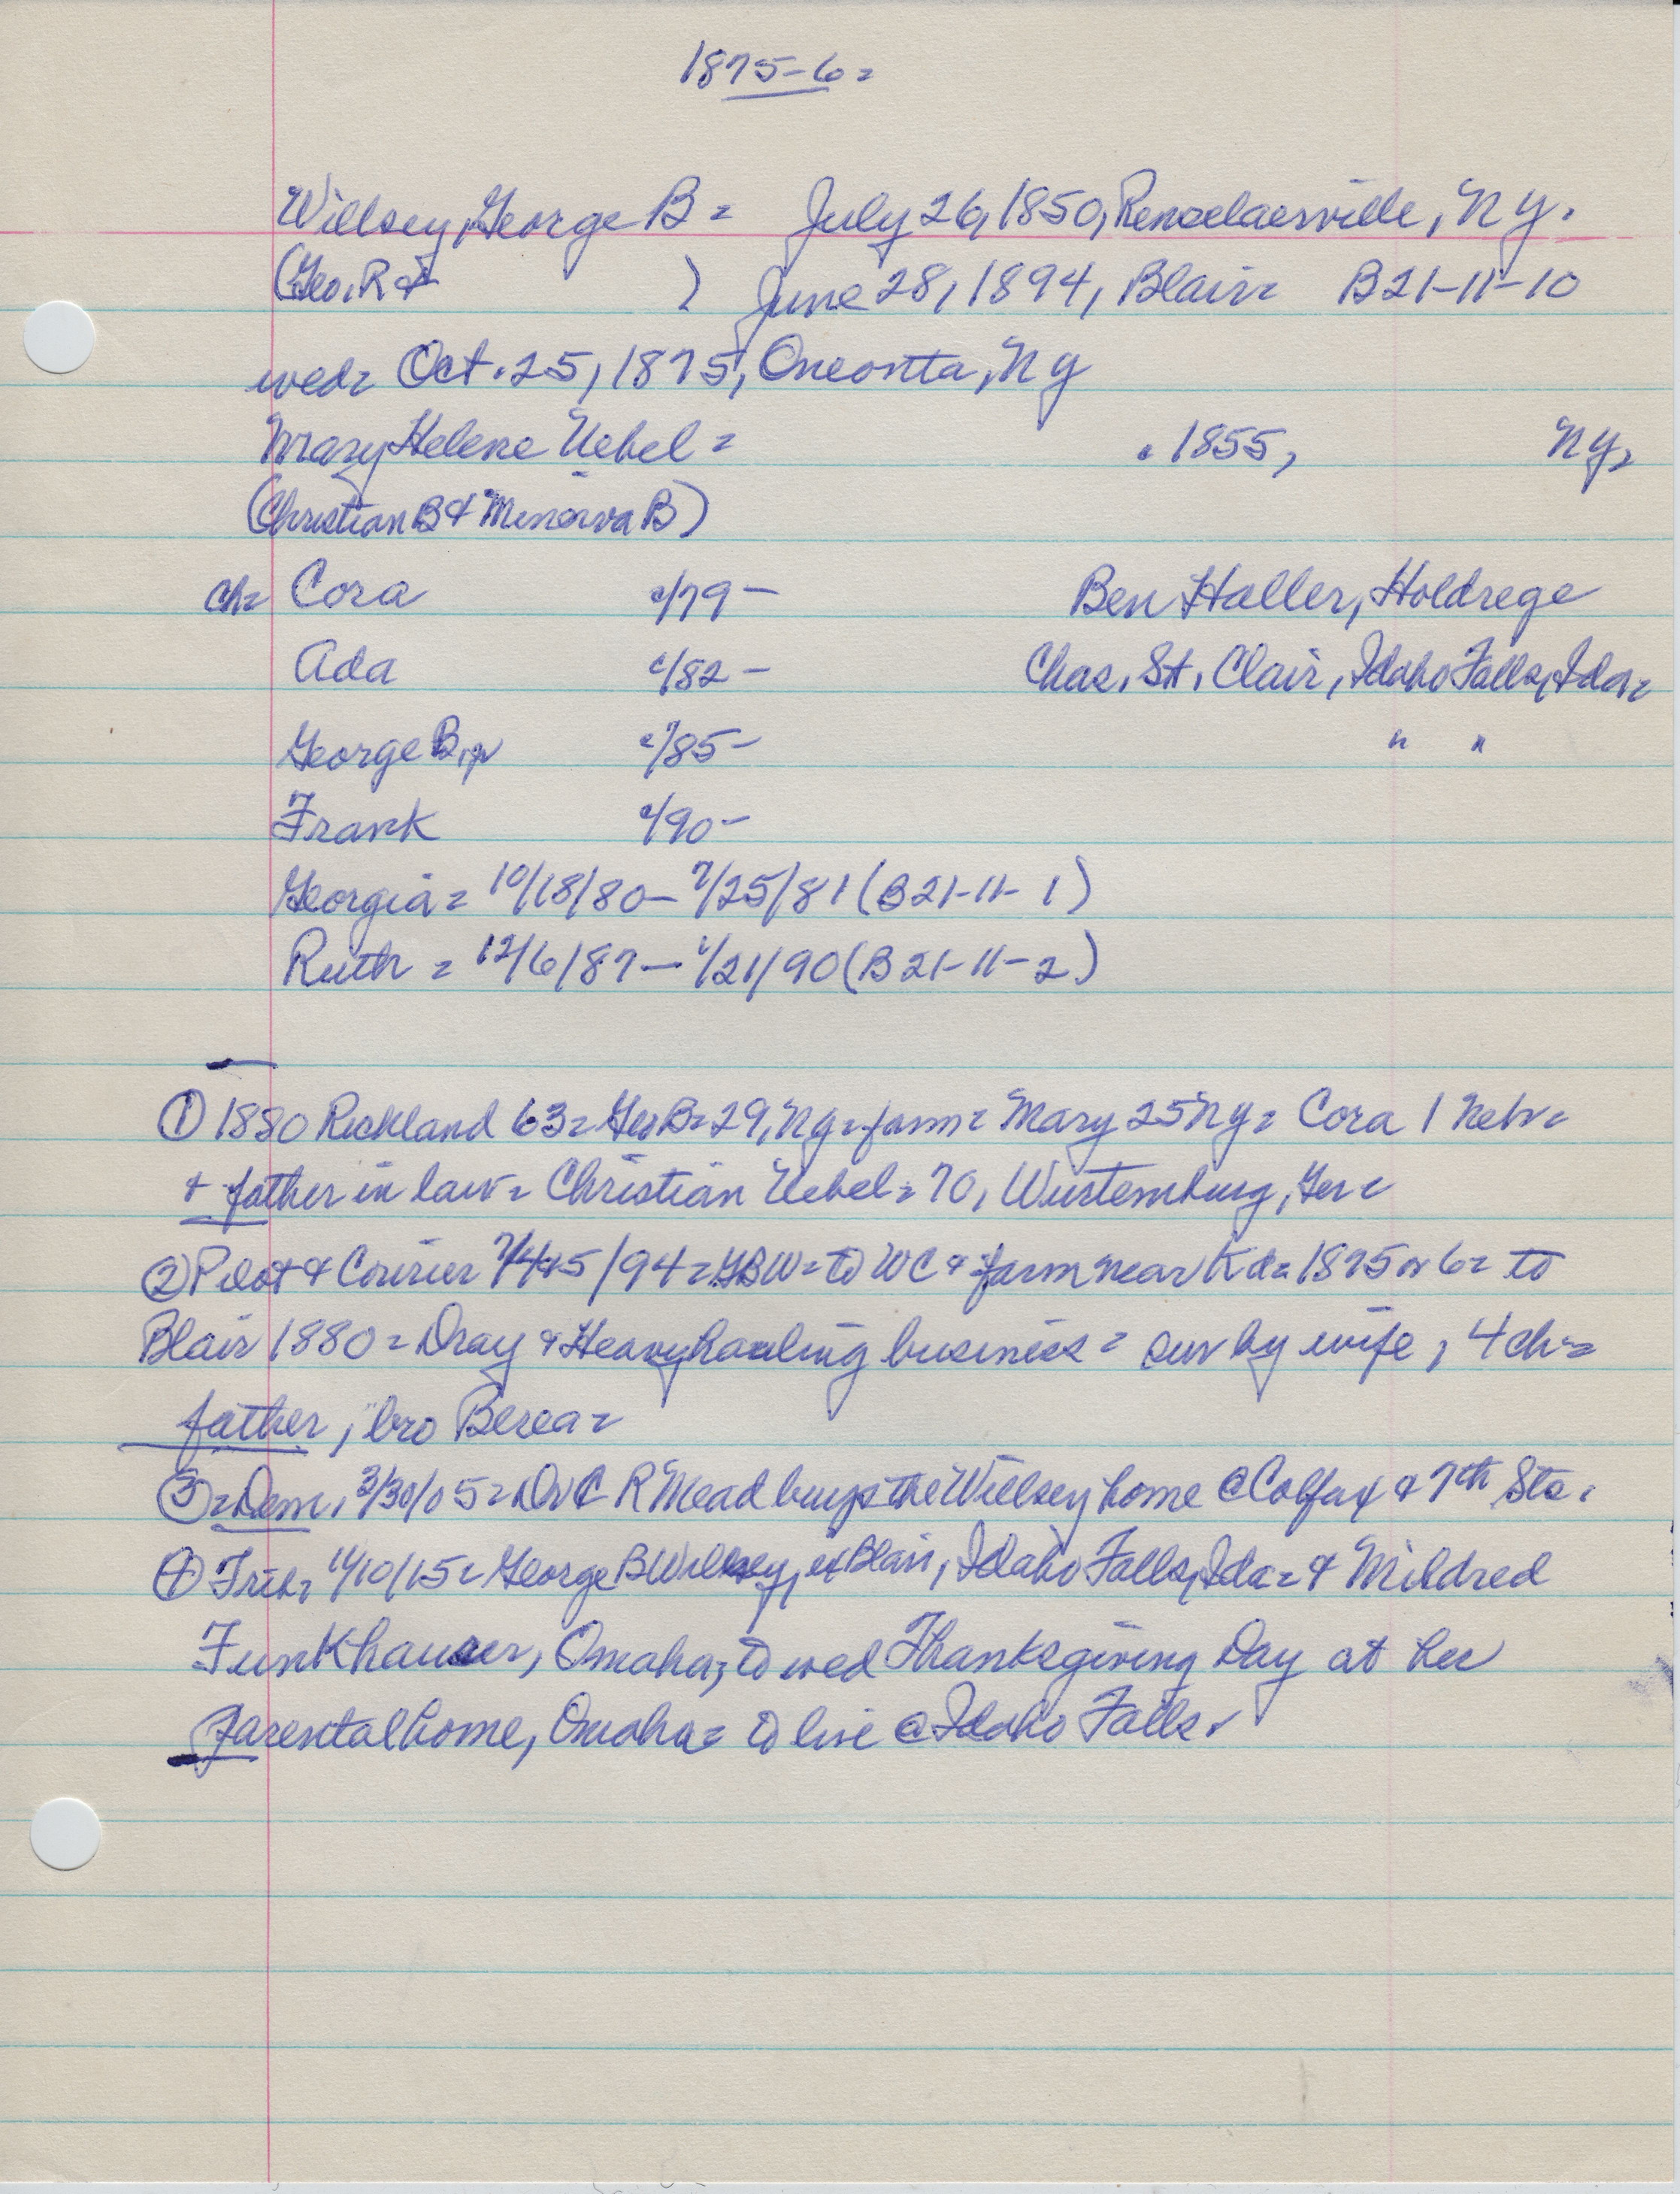 1875-6=
Willsey, George B = July 26, 1850, Renselaerville, NY.
(Geo. R & ) June 28, 1894, Blair= B21-11-10
wed= Oct. 25, 1875, Oneonta, NY
Mary Helene Uebel = c 1855, NY,
(Christian B & Minerva B)
ch= Cora c/79- Ben Haller, Holdrege
Ada c/82- Chas. St. Clair, Idaho Falls, Ida=
George B, jr c/85- " "
Frank c/90-
Georgia = 10/18/80-7/25/81 (B21-11-1)
Ruth = 12/6/87-1/21/90 (B21-11-2)
① 1880 Richland 63= Geo B= 29, NY= farm= Mary 25 NY= Cora 1 Neb=
& father in law= Christian Uebel= 70, Wurtemburg, Ger=
② Pilot & Courier 7/4&5/94= GBW= to WC & farm near Kd= 1875 or 6= to
Blair 1880= Dray & Heavy hauling business= sur by wife, 4 ch=
father, bro Berea=
③= Dem, 3/30/05= Dr C R Mead buys the Willsey home @ Colfax & 7th Sts.
④ Trib, 11/10/15= George B Willsey, ex Blair, Idaho Falls, Ida= & Mildred
Funkhauser, Omaha, to wed Thanksgiving Day at her
parental home, Omaha= to live @ Idaho Falls.